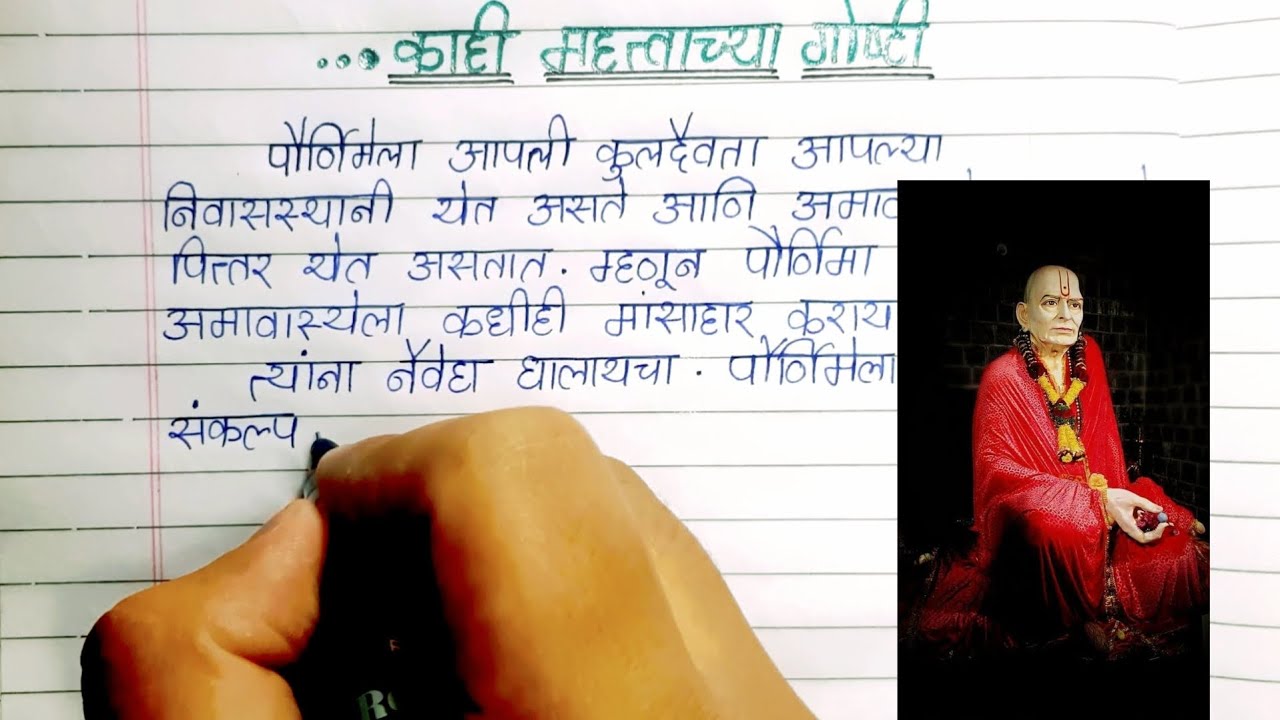 ...काही महत्त्वाच्या गोष्टी
पौर्णिमेला आपली कुलदैवता आपल्या
निवासस्थानी येत असते आनि
पित्तर येत असतात. म्हणून पौर्णिमा
अमावास्येला कधीही मांसाहार कराय
त्यांना नैवेद्य घालायचा. पौर्णिमेला
संकल्प